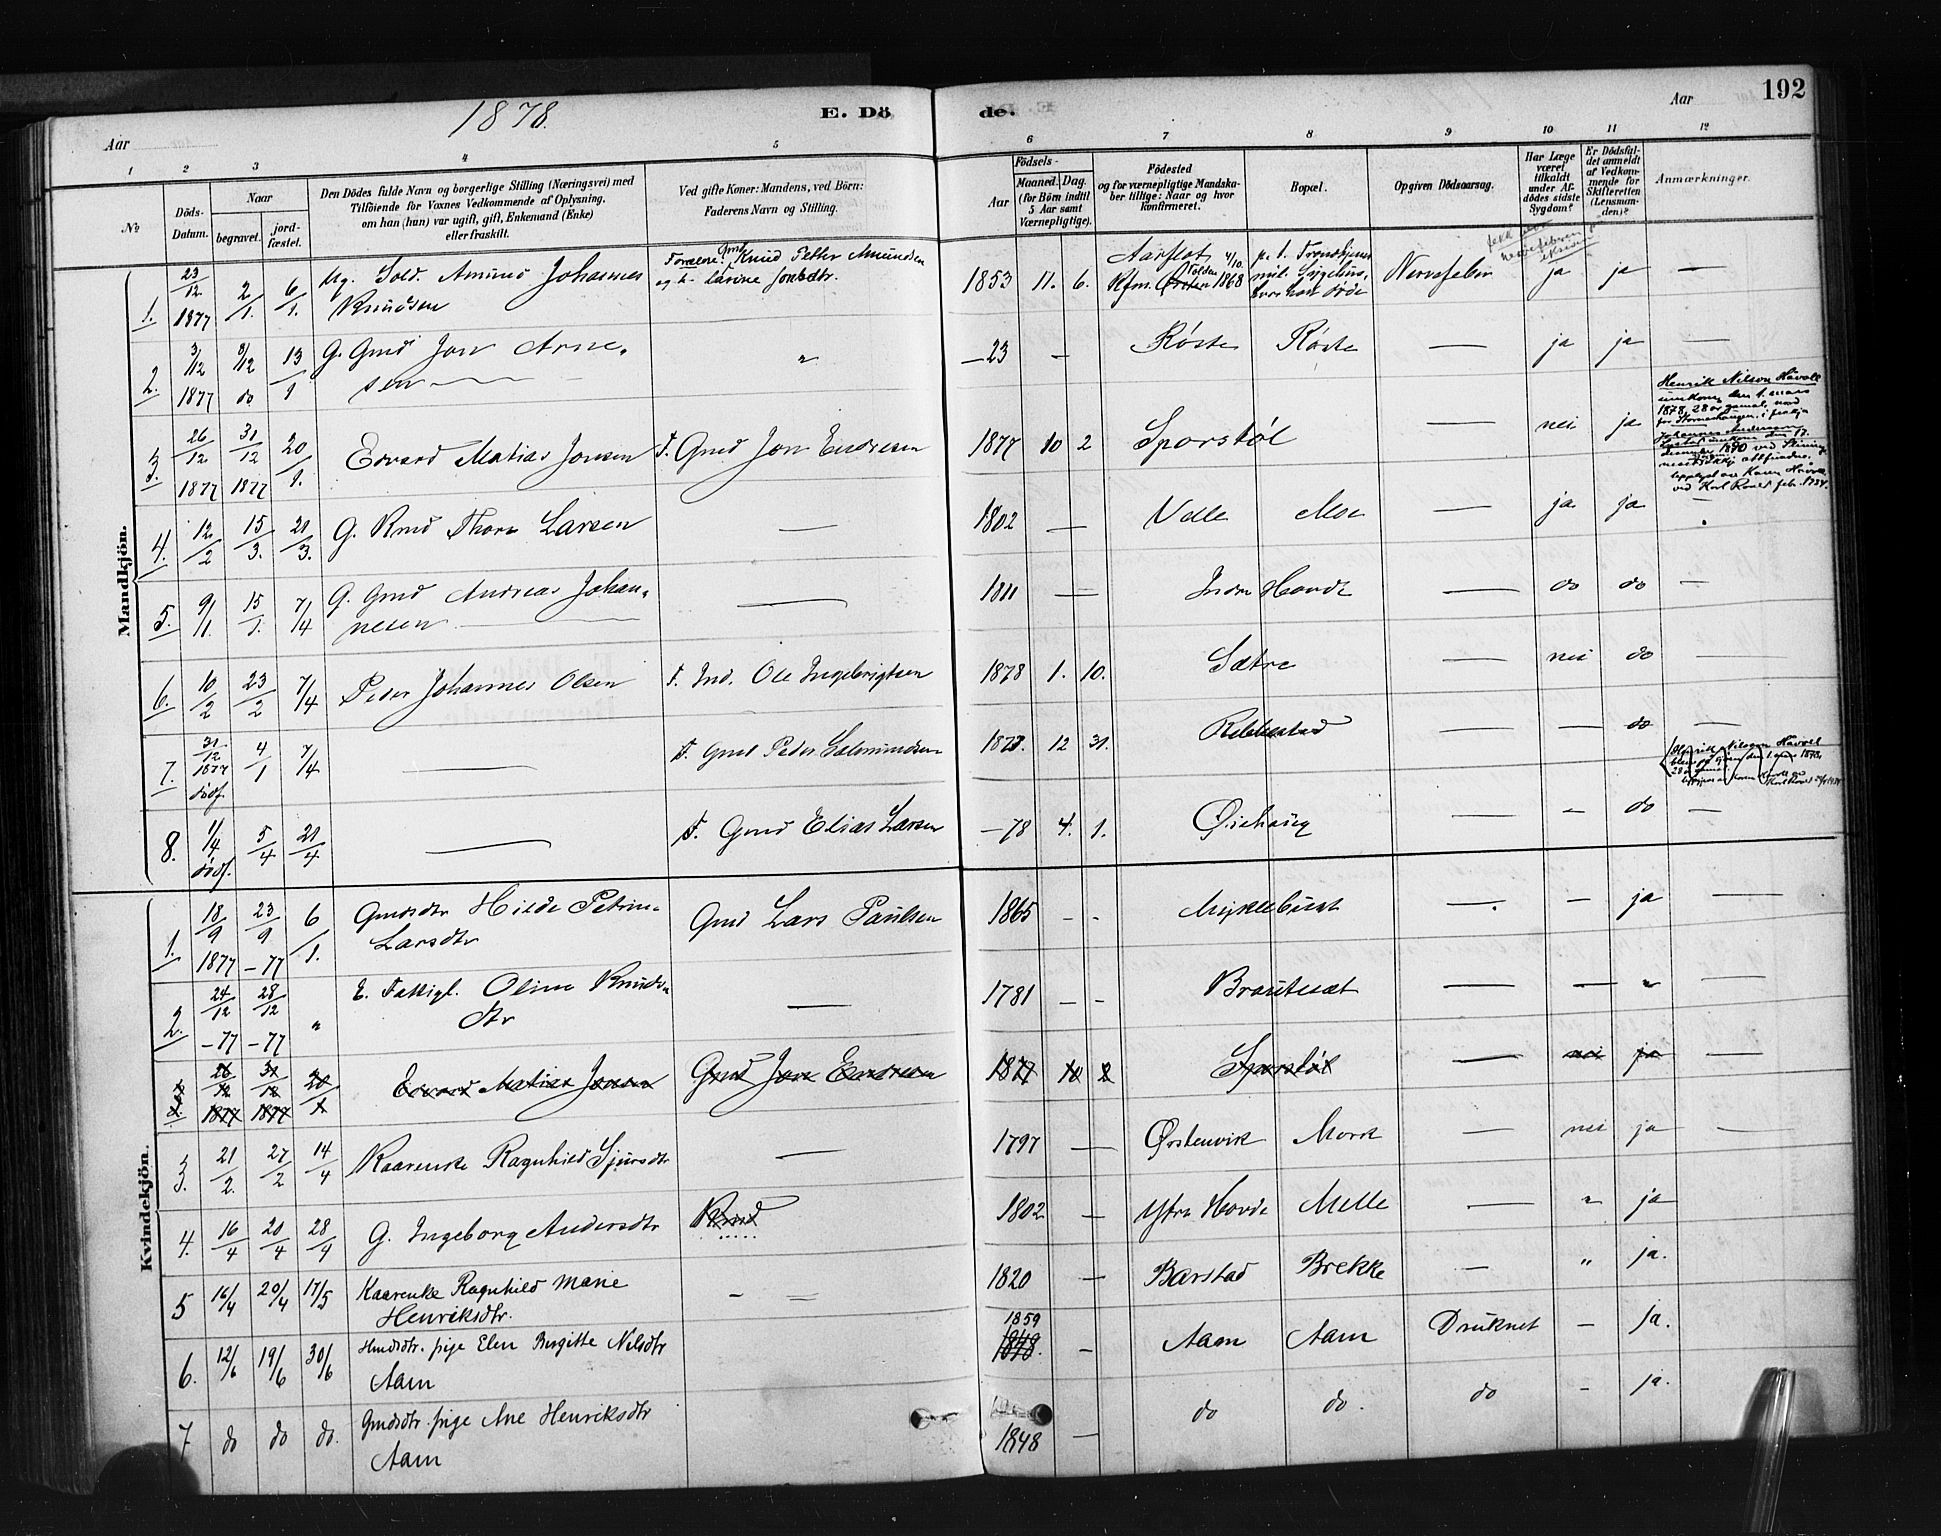 1878.
E. Dö de.
Aar
192
Aar
1 2 3 4 5 6 7 8 9 10 11 12
No
Döds-Datum.
Naar
begravet.
jord-fæstet.
Den Dödes fulde Navn og borgerlige Stilling (Næringsvei) med
Tilföiende for Voxnes Vedkommende af Oplysning,
om han (hun) var ugift, gift, Enkemand (Enke)
eller fraskilt.
Ved gifte Koner: Mandens, ved Börn:
Faderens Navn og Stilling.
Födsels-
Aar
Maaned. Dag.
(for Börn indtil
5 Aar samt
Værnepligtige).
Födested
og for værnepligtige Mandska-
ber tillige: Naar og hvor
konfirmeret.
Bopæl.
Opgiven Dödsaarsag.
Har Læge
været
tilkaldt
under Af-
dödes sidste
Sygdom?
Er Dödsfal-
det anmeldt
af Vedkom-
mende for
Skifteretten
(Lensman-
den)?
Anmærkninger.
Mandkjön.
1. 23/12 1877 2/1. 6/1. Ug. Sold. Amund Johannes Knudsen Foraeldre: Gmd Knud Petter Amundsen og h. Larine Jonsdtr. 1853 11. 6. Aarflot 4/10 Kfm. Volden 1868 Nervefeber ja ja —
2. 3/12 1877 8/12 do 13/1 G. Gmd Jon Arnesen " —23 — Røste Røste — ja ja —
3. 26/12 1877 31/12 1877 20/1. Edvard Matias Jonsen F. Gmd Jon Endresen 1877 10 2 Sporstøl — nei ja
Henrik Nilson Håvoll
umkom den 1. mars
1878, 28 år gamal, nord
4. 12/2 15/3. 21/3. G. Kmd Thore Larsen — 1802 — Velle Moe — ja ja —
5. 9/1. 15/1. 7/4 G. Gmd Andreas Johannesen — 1811 — Indre Hovde — do do —
6. 10/2 23/2 7/4 Peder Johannes Olsen F. Ind. Ole Ingebrigtsen 1878 1. 10. Sætre — nei do —
7. 31/12 1877 dødf. 4/1 7/4 — F. Gmd Peder Salmundsen 1877. 12 31. Rebbestad — — do —
8. 1/4 dødf. 5/4 21/4 — F. Gmd Elias Larsen —78 4. 1. Øiehaug – do —
Kvindekjön.
1. 18/9 1877 23/9 –77 6/1. Gmdsdtr Hilde Petrine Larsdtr Gmd Lars Paulsen 1865 - - Myklebust — – ja —
2. 24/12 –77 28/12 –77 " E. Fattigl. Oline Knudsdtr — 1781 - - Brautaset — — " —
3. 26/12 1877 31/12 1877 20/1 Edvard Matias Jonsen Gmd Jon Endresen 1877 10 2 Sporstøl — nei ja —
3. 21/2. 27/2 14/4 Kaarenke Ragnhild Sjursdtr — 1797 — Ørstenvik Mork — nei ja —
4. 16/4 20/4 28/4 G. Ingeborg Andersdtr Kmd 1802 — Ytre Hovde Melle — " ja
5 16/4 20/4 17/5 Kaarenke Ragnhild Marie Henriksdtr. - = 1820 — Barstad Brekke — " ja.
6. 12/6 19/6 30/6 pige Elen Birgitte Nilsdtr Aam 1859 1848. - Aam Aam Druknet – ja.
7 do do do. Gmdsdtr. pige Ane Henriksdtr Aam 1848 — do do. do - ja.